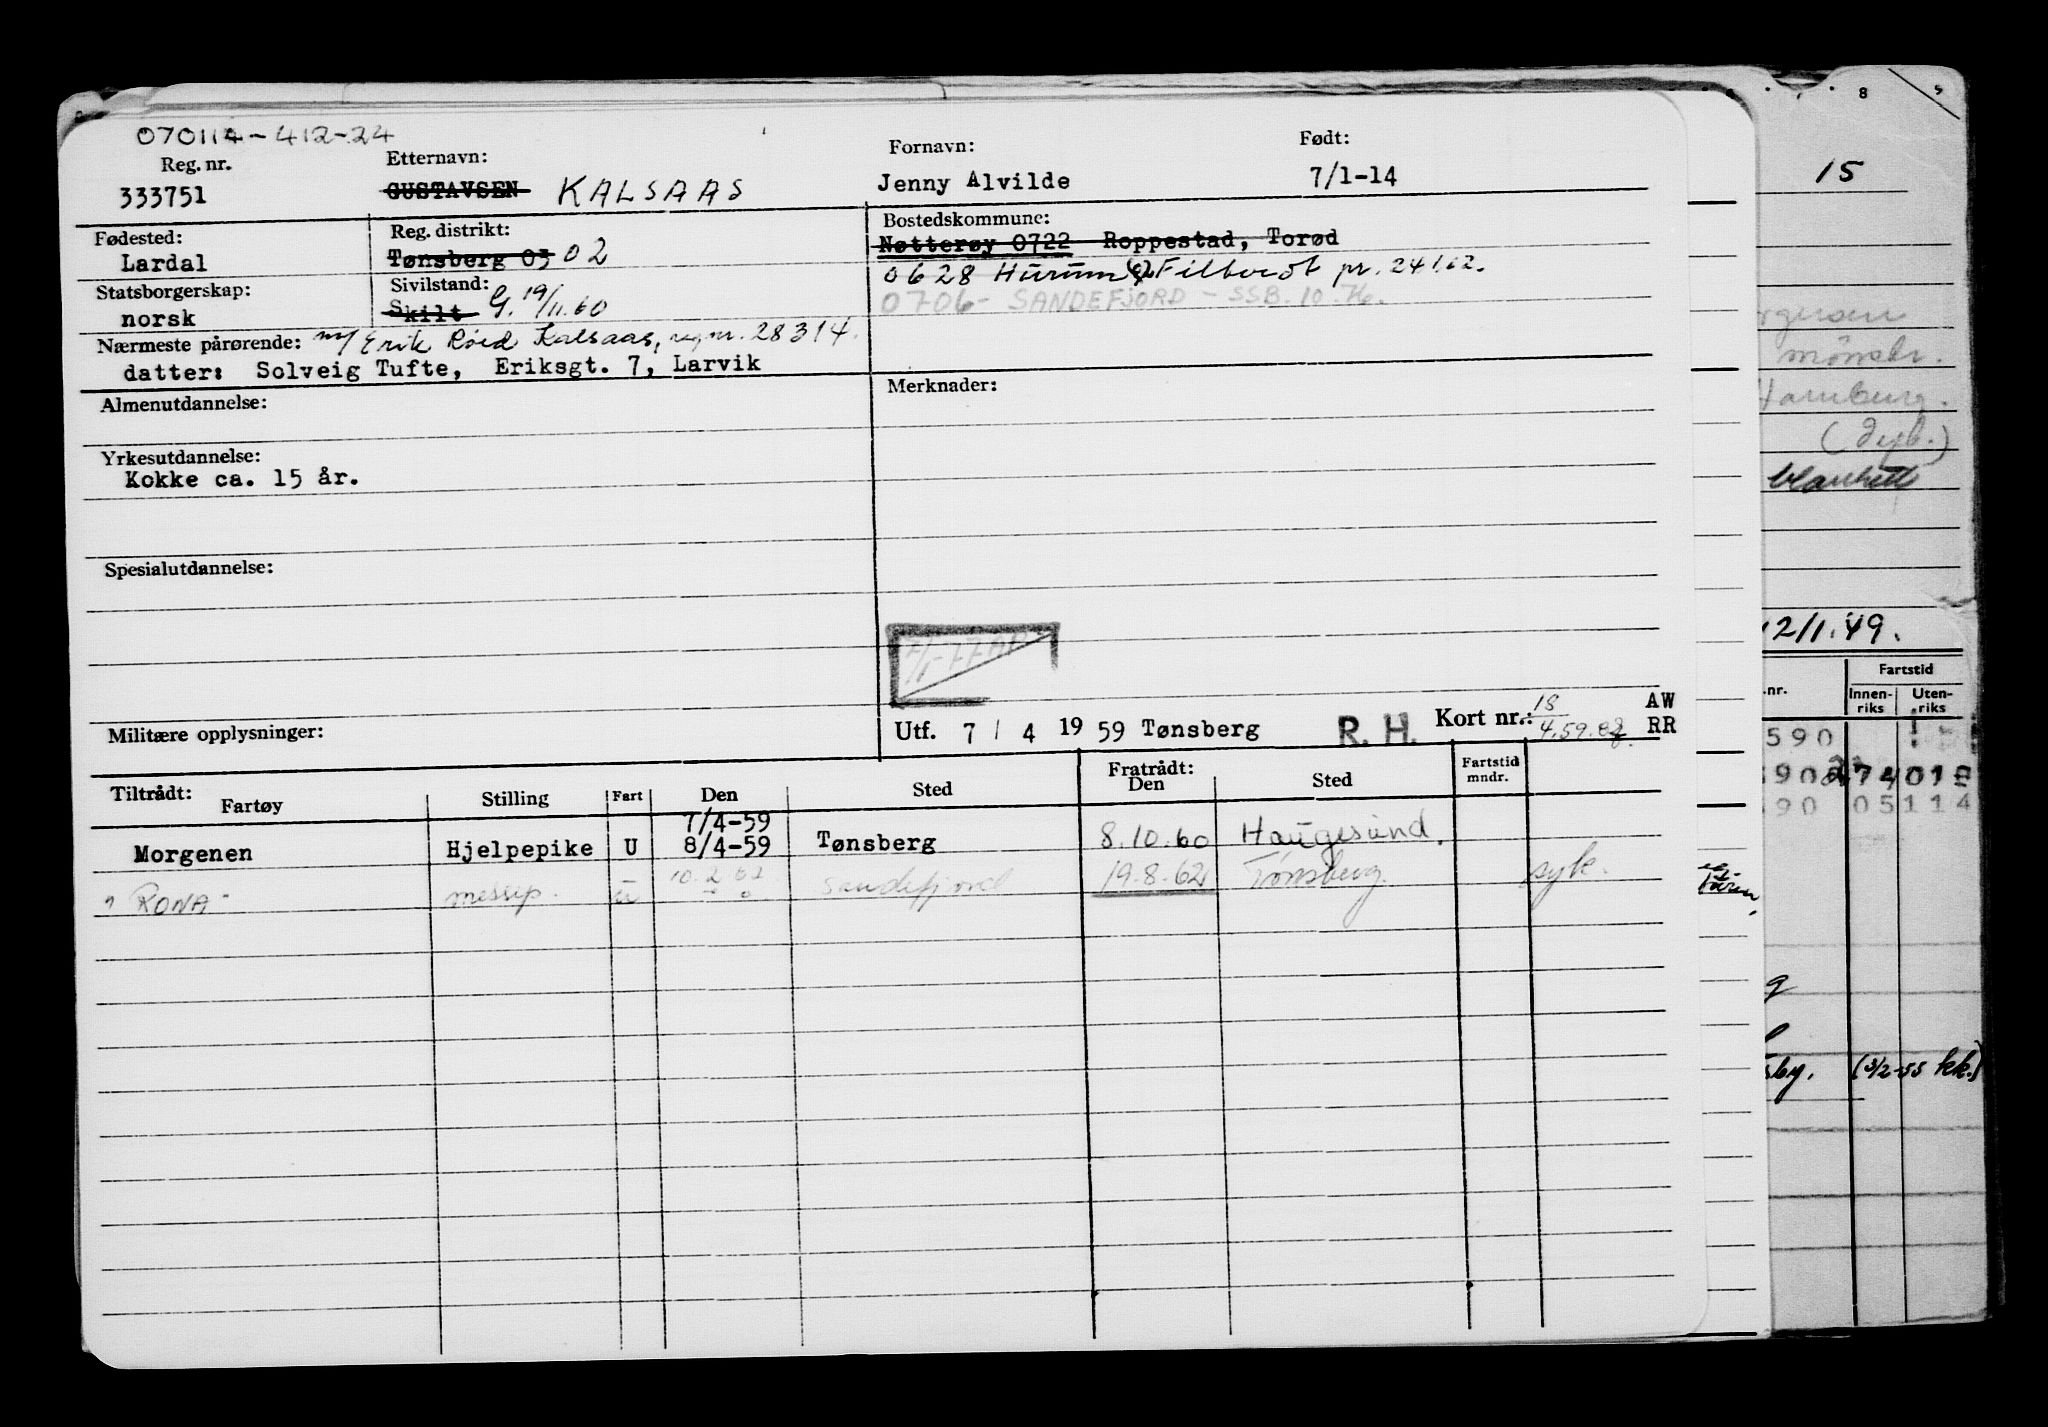 070114-412-24
Reg. nr. Etternavn: Fornavn: Født:
333751 GUSTAVSEN KALSAAS Jenny Alvilde 7/1-14
Fødested: Reg. distrikt: Bostedskommune:
Lardal Tønsberg 03 02 Nøtterøy 0722 Roppestad, Torød
Statsborgerskap: Sivilstand: 0628 Hurum Filtvedt pr. 24.1.62.
norsk Skilt G. 19/11.60 0706 - SANDEFJORD - SSB. 10.76.
Nærmeste pårørende: m/ Erik Roed Kalsaas, reg nr. 28314.
datter: Solveig Tufte, Eriksgt. 7, Larvik
Almenutdannelse: Merknader:
Yrkesutdannelse:
Kokke ca. 15 år.
Spesialutdannelse:
Militære opplysninger: Utf. 7 / 4 1959 Tønsberg R. H. Kort nr.: 18/4.59. AW RR
Tiltrådt: Fratrådt: Fartstid mndr.
Fartøy Stilling Fart Den Sted Den Sted
7/4-59
Morgenen Hjelpepike U 8/4-59 Tønsberg 8.10.60 Haugesund.
"RONA" messep. U 10.2.62 Sandefjord 19.8.62 Tønsberg. syk.
8 5
15
mønstr.
Hamburg.
blankett
12/1.49.
Fartstid
.nr. Innen-riks Uten-riks
590
05114
(3/2-55 kk.)